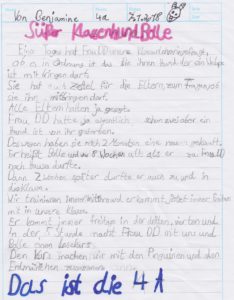 Von Benjamine 4a 7.1.2018
Süßer Klassenhund Bolle
Eines Tages hat Frau DD unsere
ob es in Ordnung ist das sie ihren Hund der ein Welpe
ist mit bringen darf.
Sie hat auch zettel für die Eltern zum fragen ob
sie ihn mitbringen darf.
Alle Eltern haten ja gesagt.
Frau DD hatte ja eigentlich schon zwei aber ein
Hund ist von ihr gestorben.
Deswegen haben sie nach 2 Monaten eine neuen gekauft.
Er heißt Bolle und war 8 Wochen alt als er zu Frau DD
nach Hause durfte.
Dann 2 wochen später durfte er auch zu und in
die Klasse.
Wir trainieren immer mit ihm und er kommt jetzt immer freitags
mit in unsere Klasse.
Er kommt immer freitags in der dritten, vierten und
in der 5 Stunde macht Frau DD mit uns und
Bolle einen Lesekurs.
Den Kurs machen wir mit den Pinguinen und den
Erdmännchen zusammen.
Das ist die 4A